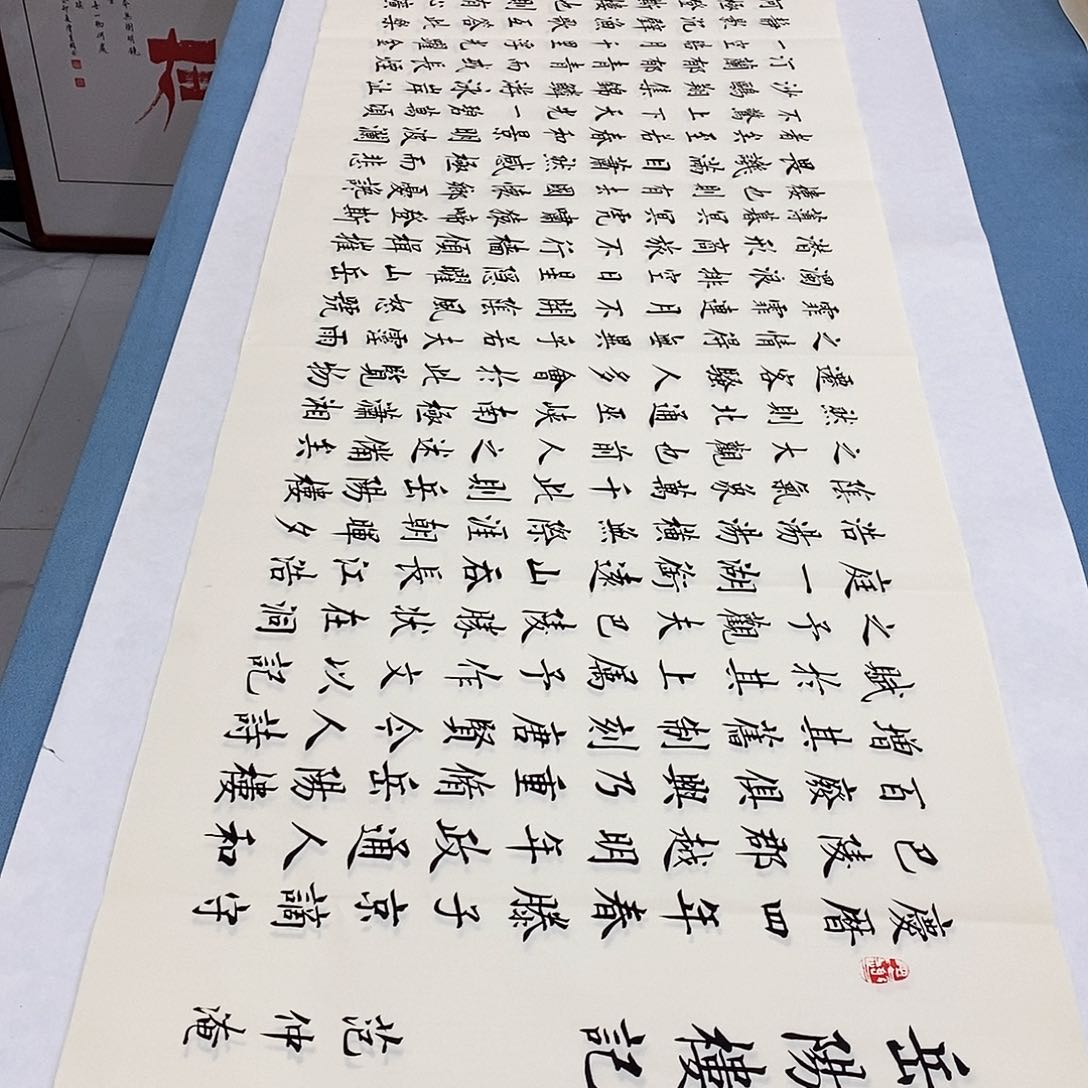 岳陽樓記
范仲淹
慶曆四年春滕子京謫守
巴陵郡越明年政通人和
百廢俱興乃重脩岳陽樓
增其舊制刻唐賢今人詩
賦於其上属予作文以記
之予觀夫巴陵勝狀在洞
庭一湖銜遠山吞長江浩
浩湯湯橫無際涯朝暉夕
陰氣象萬千此則岳陽樓
之大觀也前人之述備矣
然則北通巫峽南極瀟湘
遷客騷人多會於此覽物
之情得無異乎若夫霪雨
霏霏連月不開陰風怒號
濁浪排空日星隱曜山岳
潛形商旅不行檣傾楫摧
薄暮冥冥虎嘯猿啼登斯
樓也則有去國懷鄉憂讒
畏譏滿目蕭然感極而悲
者矣至若春和景明波瀾
不驚上下天光一碧萬頃
沙鷗翔集錦鱗游泳岸芷
汀蘭郁郁青青而或長煙
一空皓月千里浮光躍金
靜影沉璧漁歌互答此樂